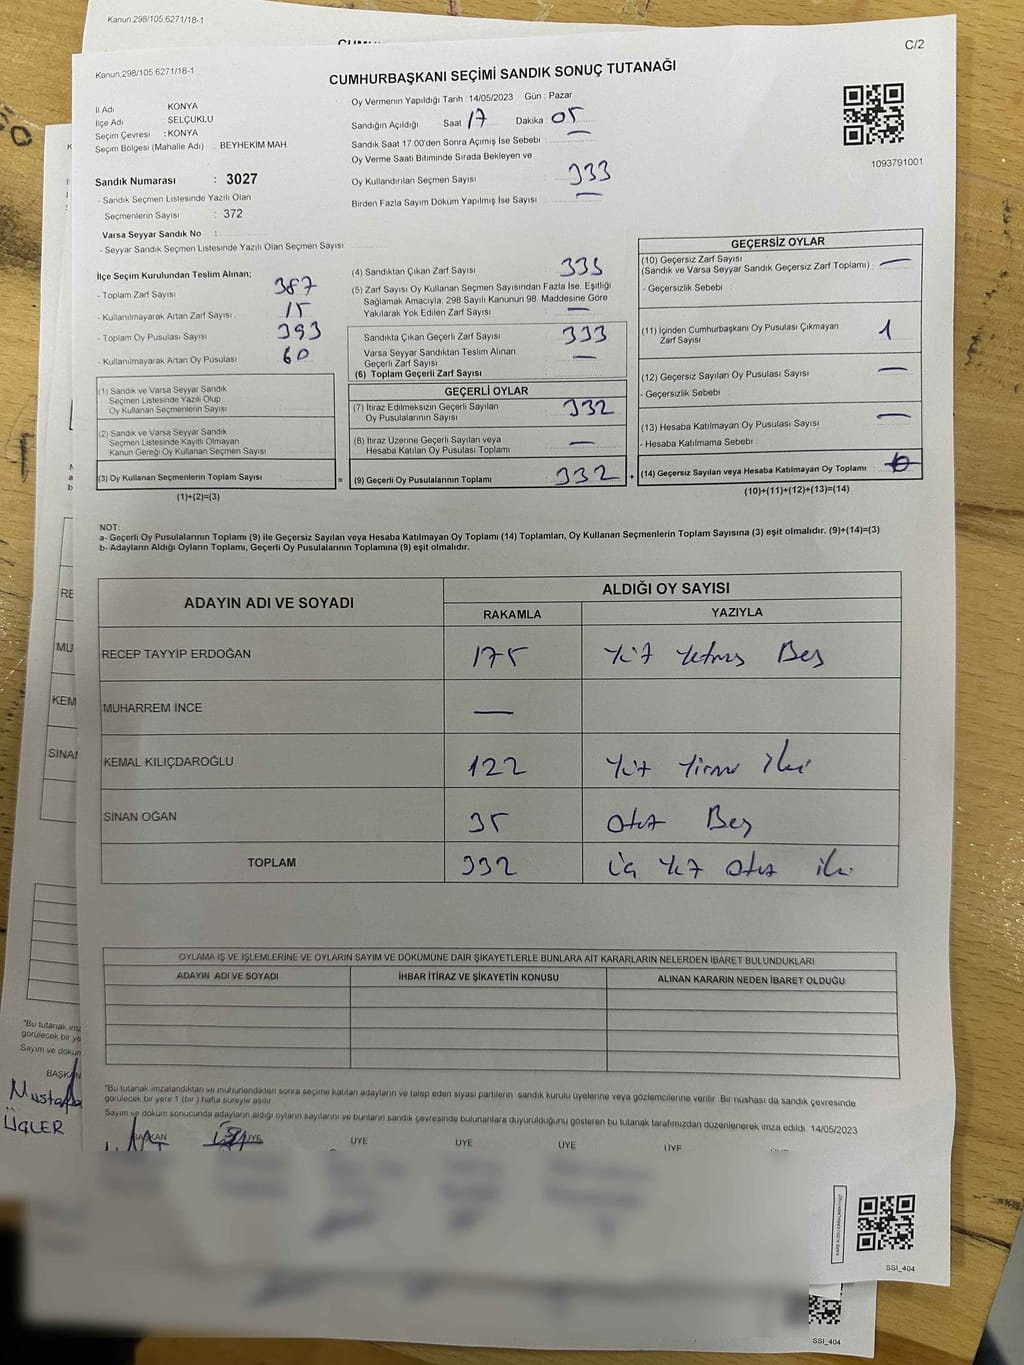 Kanun.298/105.6271/18-1
Kanun.298/105.6271/18-1
C/2
CUMHURBAŞKANI SEÇİMİ SANDIK SONUÇ TUTANAĞI
İl Adı : KONYA
İlçe Adı : SELÇUKLU
Seçim Çevresi : KONYA
Seçim Bölgesi (Mahalle Adı) : BEYHEKIM MAH
Sandık Numarası : 3027
- Sandık Seçmen Listesinde Yazılı Olan
Seçmenlerin Sayısı : 372
Varsa Seyyar Sandık No :
- Seyyar Sandık Seçmen Listesinde Yazılı Olan Seçmen Sayısı
Oy Vermenin Yapıldığı Tarih :14/05/2023 Gün : Pazar
Sandığın Açıldığı Saat 17 Dakika 05
Sandık Saat 17:00'den Sonra Açımış İse Sebebi : —
Oy Verme Saati Bitiminde Sırada Bekleyen ve
Oy Kullandırılan Seçmen Sayısı : 333
Birden Fazla Sayım Döküm Yapılmış İse Sayısı : —
1093791001
İlçe Seçim Kurulundan Teslim Alınan;
- Toplam Zarf Sayısı : 387
- Kullanılmayarak Artan Zarf Sayısı : 15
- Toplam Oy Pusulası Sayısı : 393
- Kullanılmayarak Artan Oy Pusulası : 60
(1) Sandık ve Varsa Seyyar Sandık
Seçmen Listesinde Yazılı Olup
Oy Kullanan Seçmenlerin Sayısı
(2) Sandık ve Varsa Seyyar Sandık
Seçmen Listesinde Kayıtlı Olmayan
Kanun Gereği Oy Kullanan Seçmen Sayısı
(3) Oy Kullanan Seçmenlerin Toplam Sayısı
(1)+(2)=(3)
(4) Sandıktan Çıkan Zarf Sayısı : 333
(5) Zarf Sayısı Oy Kullanan Seçmen Sayısından Fazla İse, Eşitliği
Sağlamak Amacıyla, 298 Sayılı Kanunun 98. Maddesine Göre
Yakılarak Yok Edilen Zarf Sayısı : —
Sandıkta Çıkan Geçerli Zarf Sayısı : 333
Varsa Seyyar Sandıktan Teslim Alınan
Geçerli Zarf Sayısı : —
(6) Toplam Geçerli Zarf Sayısı
GEÇERLİ OYLAR
(7) İtiraz Edilmeksizin Geçerli Sayılan
Oy Pusulalarının Sayısı : 332
(8) İtiraz Üzerine Geçerli Sayılan veya
Hesaba Katılan Oy Pusulaları Toplamı : —
= (9) Geçerli Oy Pusulalarının Toplamı 332
GEÇERSİZ OYLAR
(10) Geçersiz Zarf Sayısı
(Sandık ve Varsa Seyyar Sandık Geçersiz Zarf Toplamı) : —
- Geçersizlik Sebebi :
(11) İçinden Cumhurbaşkanı Oy Pusulası Çıkmayan
Zarf Sayısı : 1
(12) Geçersiz Sayılan Oy Pusulası Sayısı : —
- Geçersizlik Sebebi :
(13) Hesaba Katılmayan Oy Pusulası Sayısı : —
- Hesaba Katılmama Sebebi :
+ (14) Geçersiz Sayılan veya Hesaba Katılmayan Oy Toplamı :
(10)+(11)+(12)+(13)=(14)
NOT:
a- Geçerli Oy Pusulalarının Toplamı (9) ile Geçersiz Sayılan veya Hesaba Katılmayan Oy Toplamı (14) Toplamları, Oy Kullanan Seçmenlerin Toplam Sayısına (3) eşit olmalıdır. (9)+(14)=(3)
b- Adayların Aldığı Oyların Toplamı, Geçerli Oy Pusulalarının Toplamına (9) eşit olmalıdır.
ADAYIN ADI VE SOYADI ALDIĞI OY SAYISI
RAKAMLA YAZIYLA
RECEP TAYYİP ERDOĞAN 175 Yüz Yetmiş Beş
MUHARREM İNCE —
KEMAL KILIÇDAROĞLU 122 Yüz Yirmi İki
SİNAN OĞAN 35 Otuz Beş
TOPLAM 332 Üç Yüz Otuz iki
OYLAMA İŞ VE İŞLEMLERİNE VE OYLARIN SAYIM VE DÖKÜMÜNE DAİR ŞİKAYETLERLE BUNLARA AİT KARARLARIN NELERDEN İBARET BULUNDUKLARI
ADAYIN ADI VE SOYADI İHBAR İTİRAZ VE ŞİKAYETİN KONUSU ALINAN KARARIN NEDEN İBARET OLDUĞU
*Bu tutanak imzalandıktan ve mühürlendikten sonra seçime katılan adayların ve talep eden siyasi partilerin sandık kurulu üyelerine veya gözlemcilerine verilir. Bir nüshası da sandık çevresinde
görülecek bir yere 1 (bir) hafta süreyle asılır.
Sayım ve döküm sonucunda adayların aldığı oyların sayılarını ve bunların sandık çevresinde bulunanlara duyurulduğunu gösteren bu tutanak tarafımızdan düzenlenerek imza edildi. 14/05/2023
BAŞKAN ÜYE ÜYE ÜYE ÜYE ÜYE
RE
MU
KEM
SINA
*Bu tutanak imz
görülecek bir ye
Sayım ve dökün
BAŞKAN
Mustafa
ÜÇLER
SSI_404
SSI_404